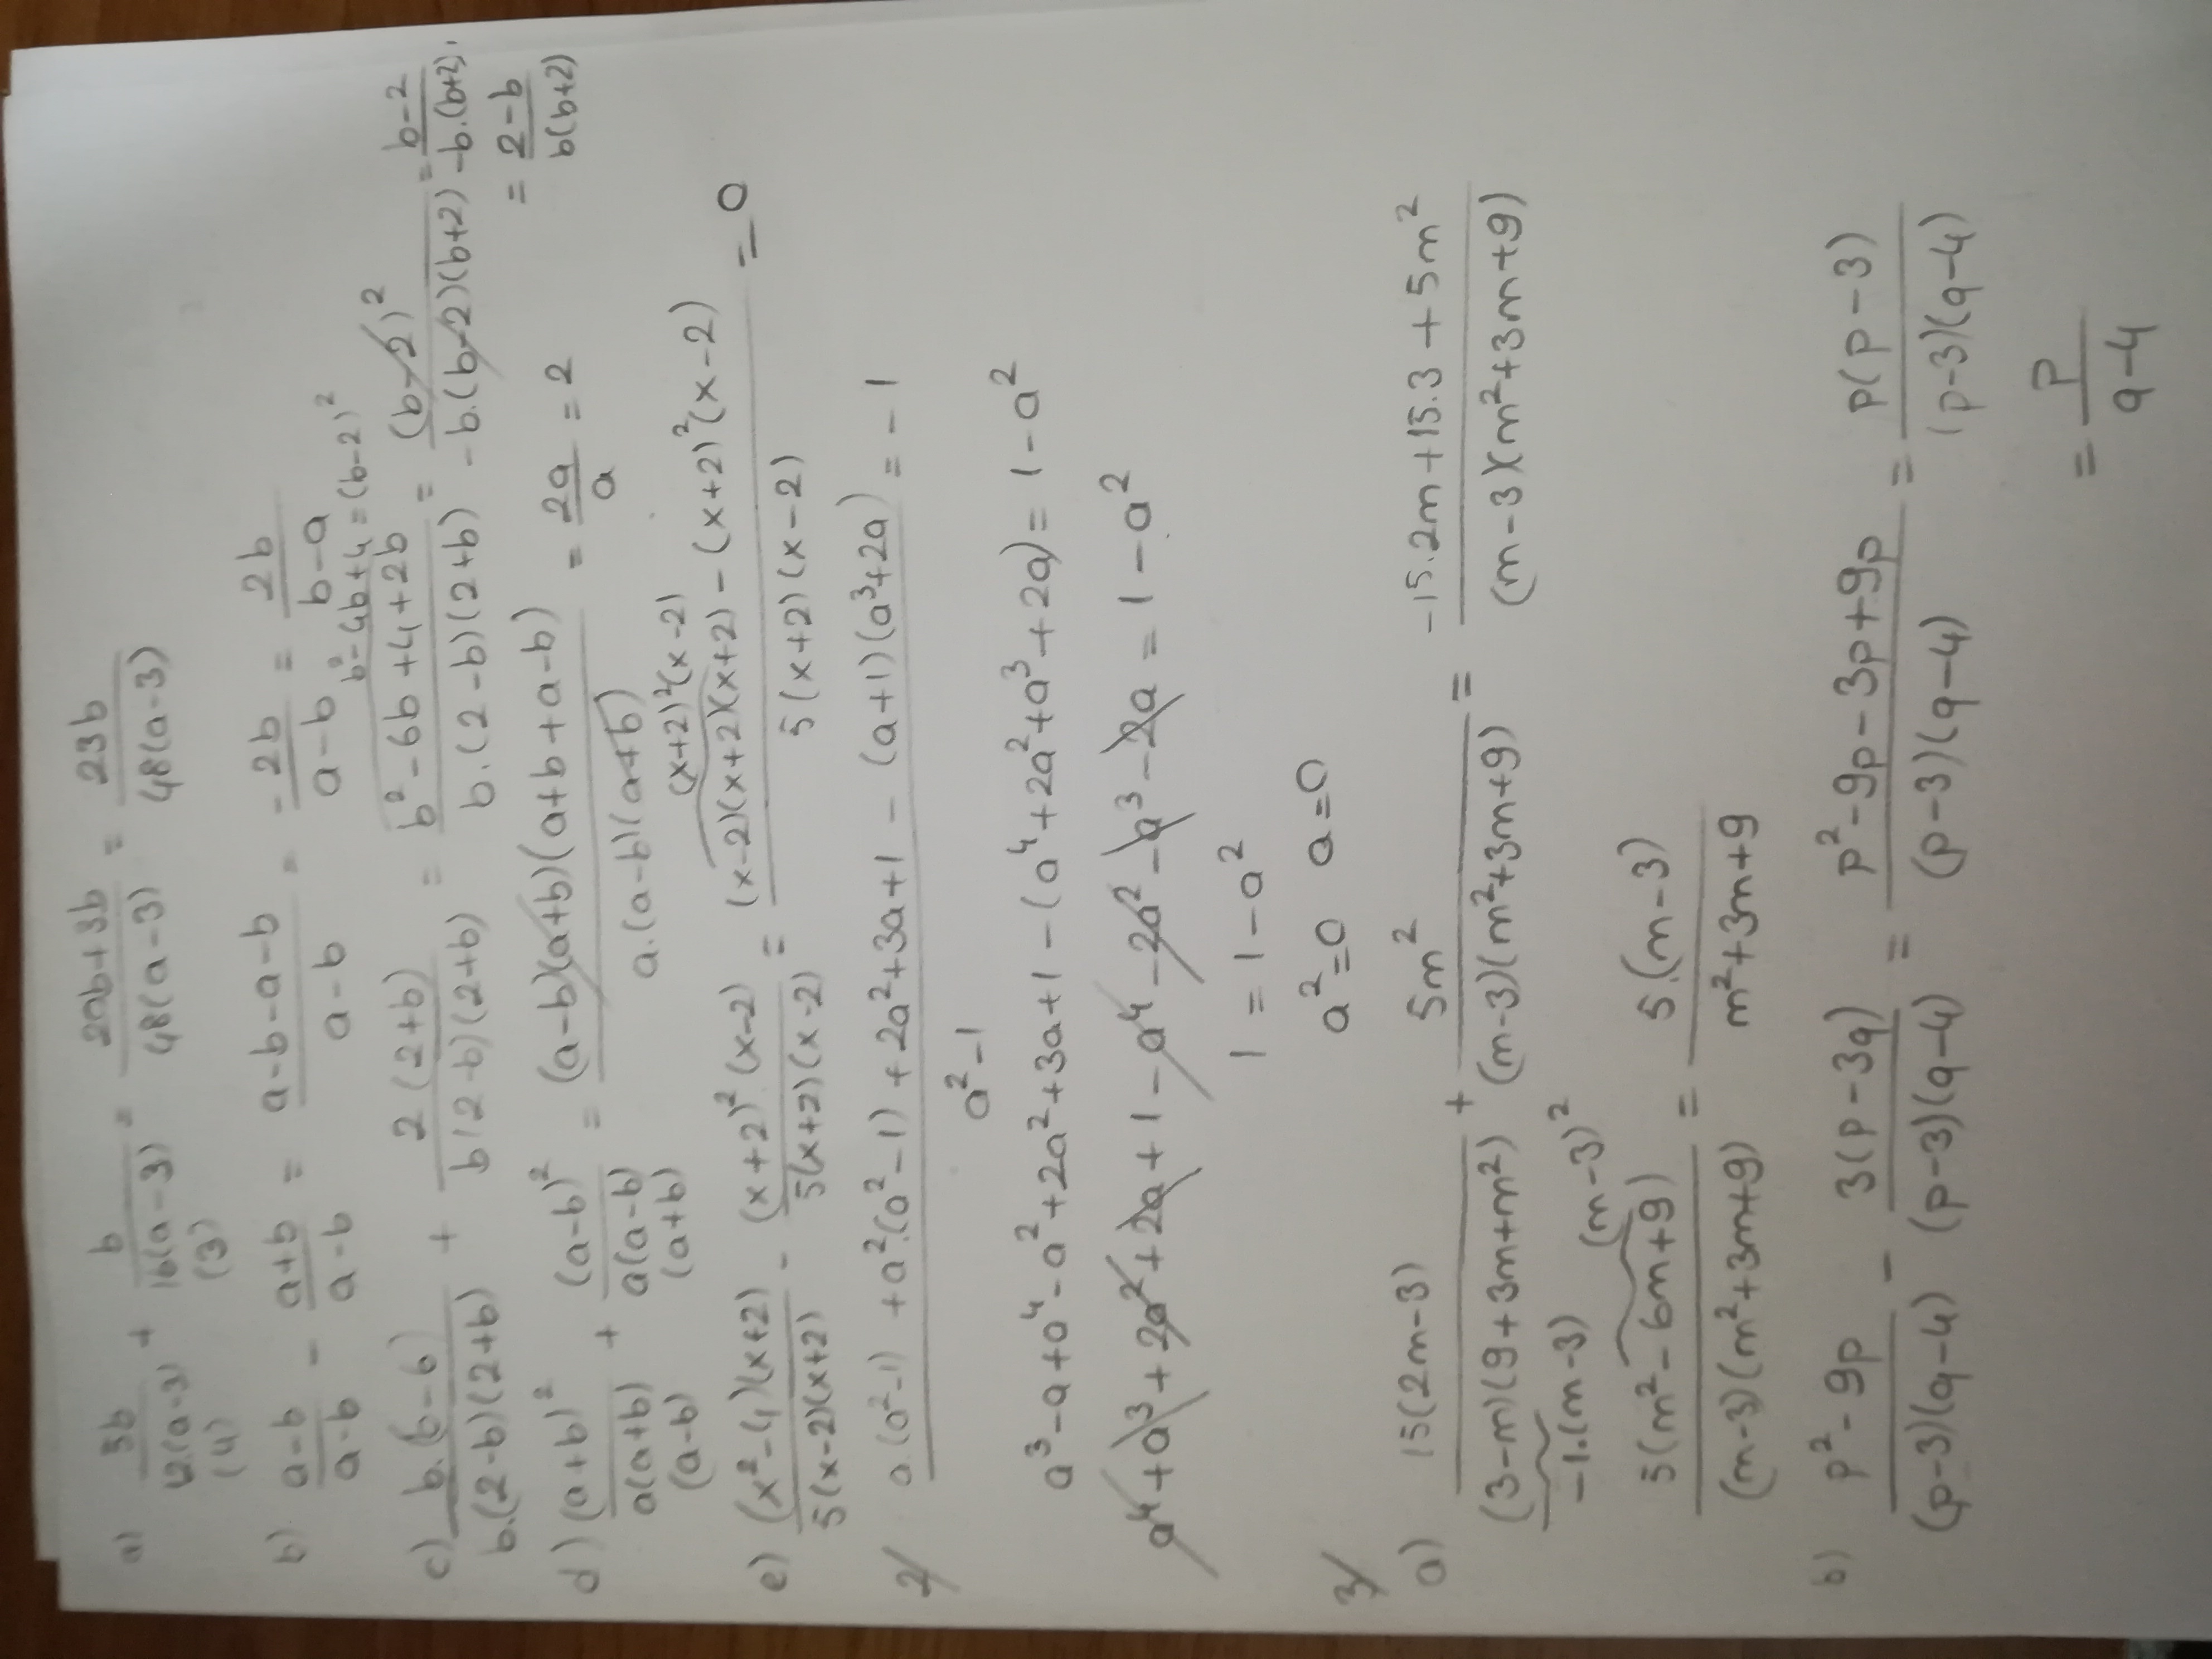 a) 5b/12(a-3) + b/16(a-3) = 20b+3b/48(a-3) = 23b/48(a-3)
(4) (3)
b) a-b/a-b - a+b/a-b = a-b-a-b/a-b = -2b/a-b = 2b/b-a
b²-4b+4=(b-2)²
c) b.(b-6)/b.(2-b)(2+b) + 2(2+b)/b(2-b)(2+b) = b²-6b+4+2b/b.(2-b)(2+b) = (b-2)²/-b.(b-2)(b+2) = b-2/-b.(b+2)
= 2-b/b(b+2)
d) (a+b)²/a(a+b) + (a-b)²/a(a-b) = (a-b)(a+b)(a+b+a-b)/a.(a-b)(a+b) = 2a/a = 2
(a-b) (a+b)
(x+2)²(x-2)
e) (x²-4)(x+2)/5(x-2)(x+2) - (x+2)²(x-2)/5(x+2)(x-2) = (x-2)(x+2)(x+2) - (x+2)²(x-2)/5(x+2)(x-2) = 0
2/ a.(a²-1) + a²(a²-1) + 2a²+3a+1 - (a+1)(a³+2a)/a²-1 = -1
a³-a+a⁴-a²+2a²+3a+1-(a⁴+2a²+a³+2a) = 1-a²
a⁴+a³+2a²+2a+1-a⁴-2a²-a³-2a = 1-a²
1 = 1-a²
a²=0 a=0
3/
a) 15(2m-3)/(3-m)(9+3m+m²) + 5m²/(m-3)(m²+3m+9) = -15.2m+15.3+5m²/(m-3)(m²+3m+9)
-1.(m-3)
(m-3)²
5(m²-6m+9)/(m-3)(m²+3m+9) = 5.(m-3)/m²+3m+9
b) p²-9p/(p-3)(q-4) - 3(p-3q)/(p-3)(q-4) = p²-9p-3p+9p/(p-3)(q-4) = p(p-3)/(p-3)(q-4)
= p/q-4